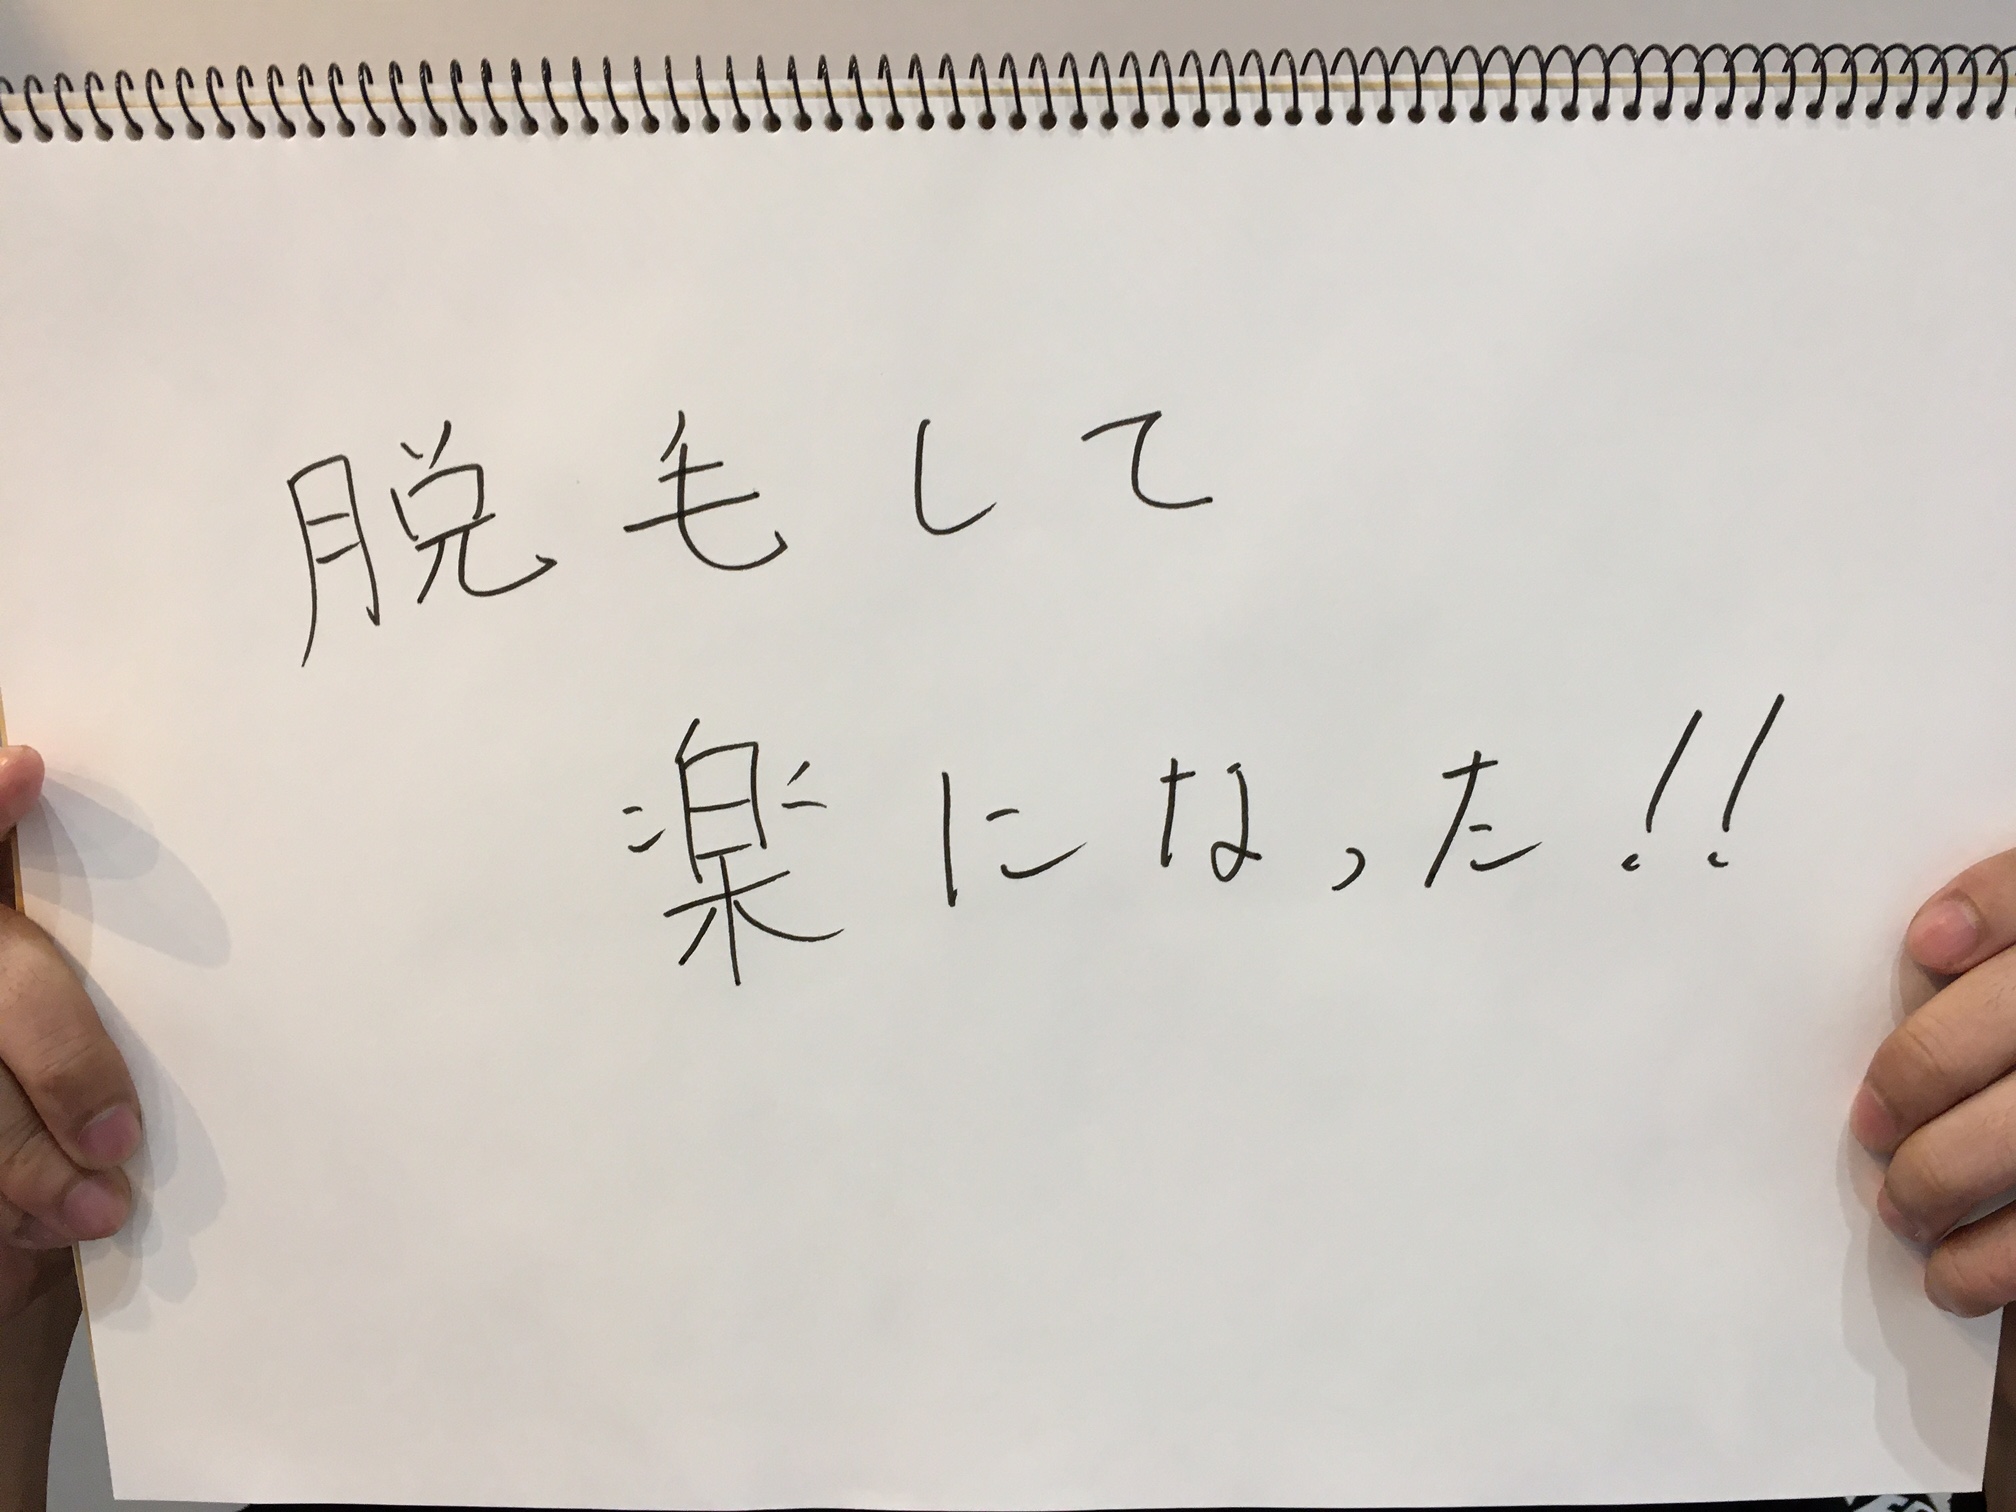 脱毛して
楽になった!!